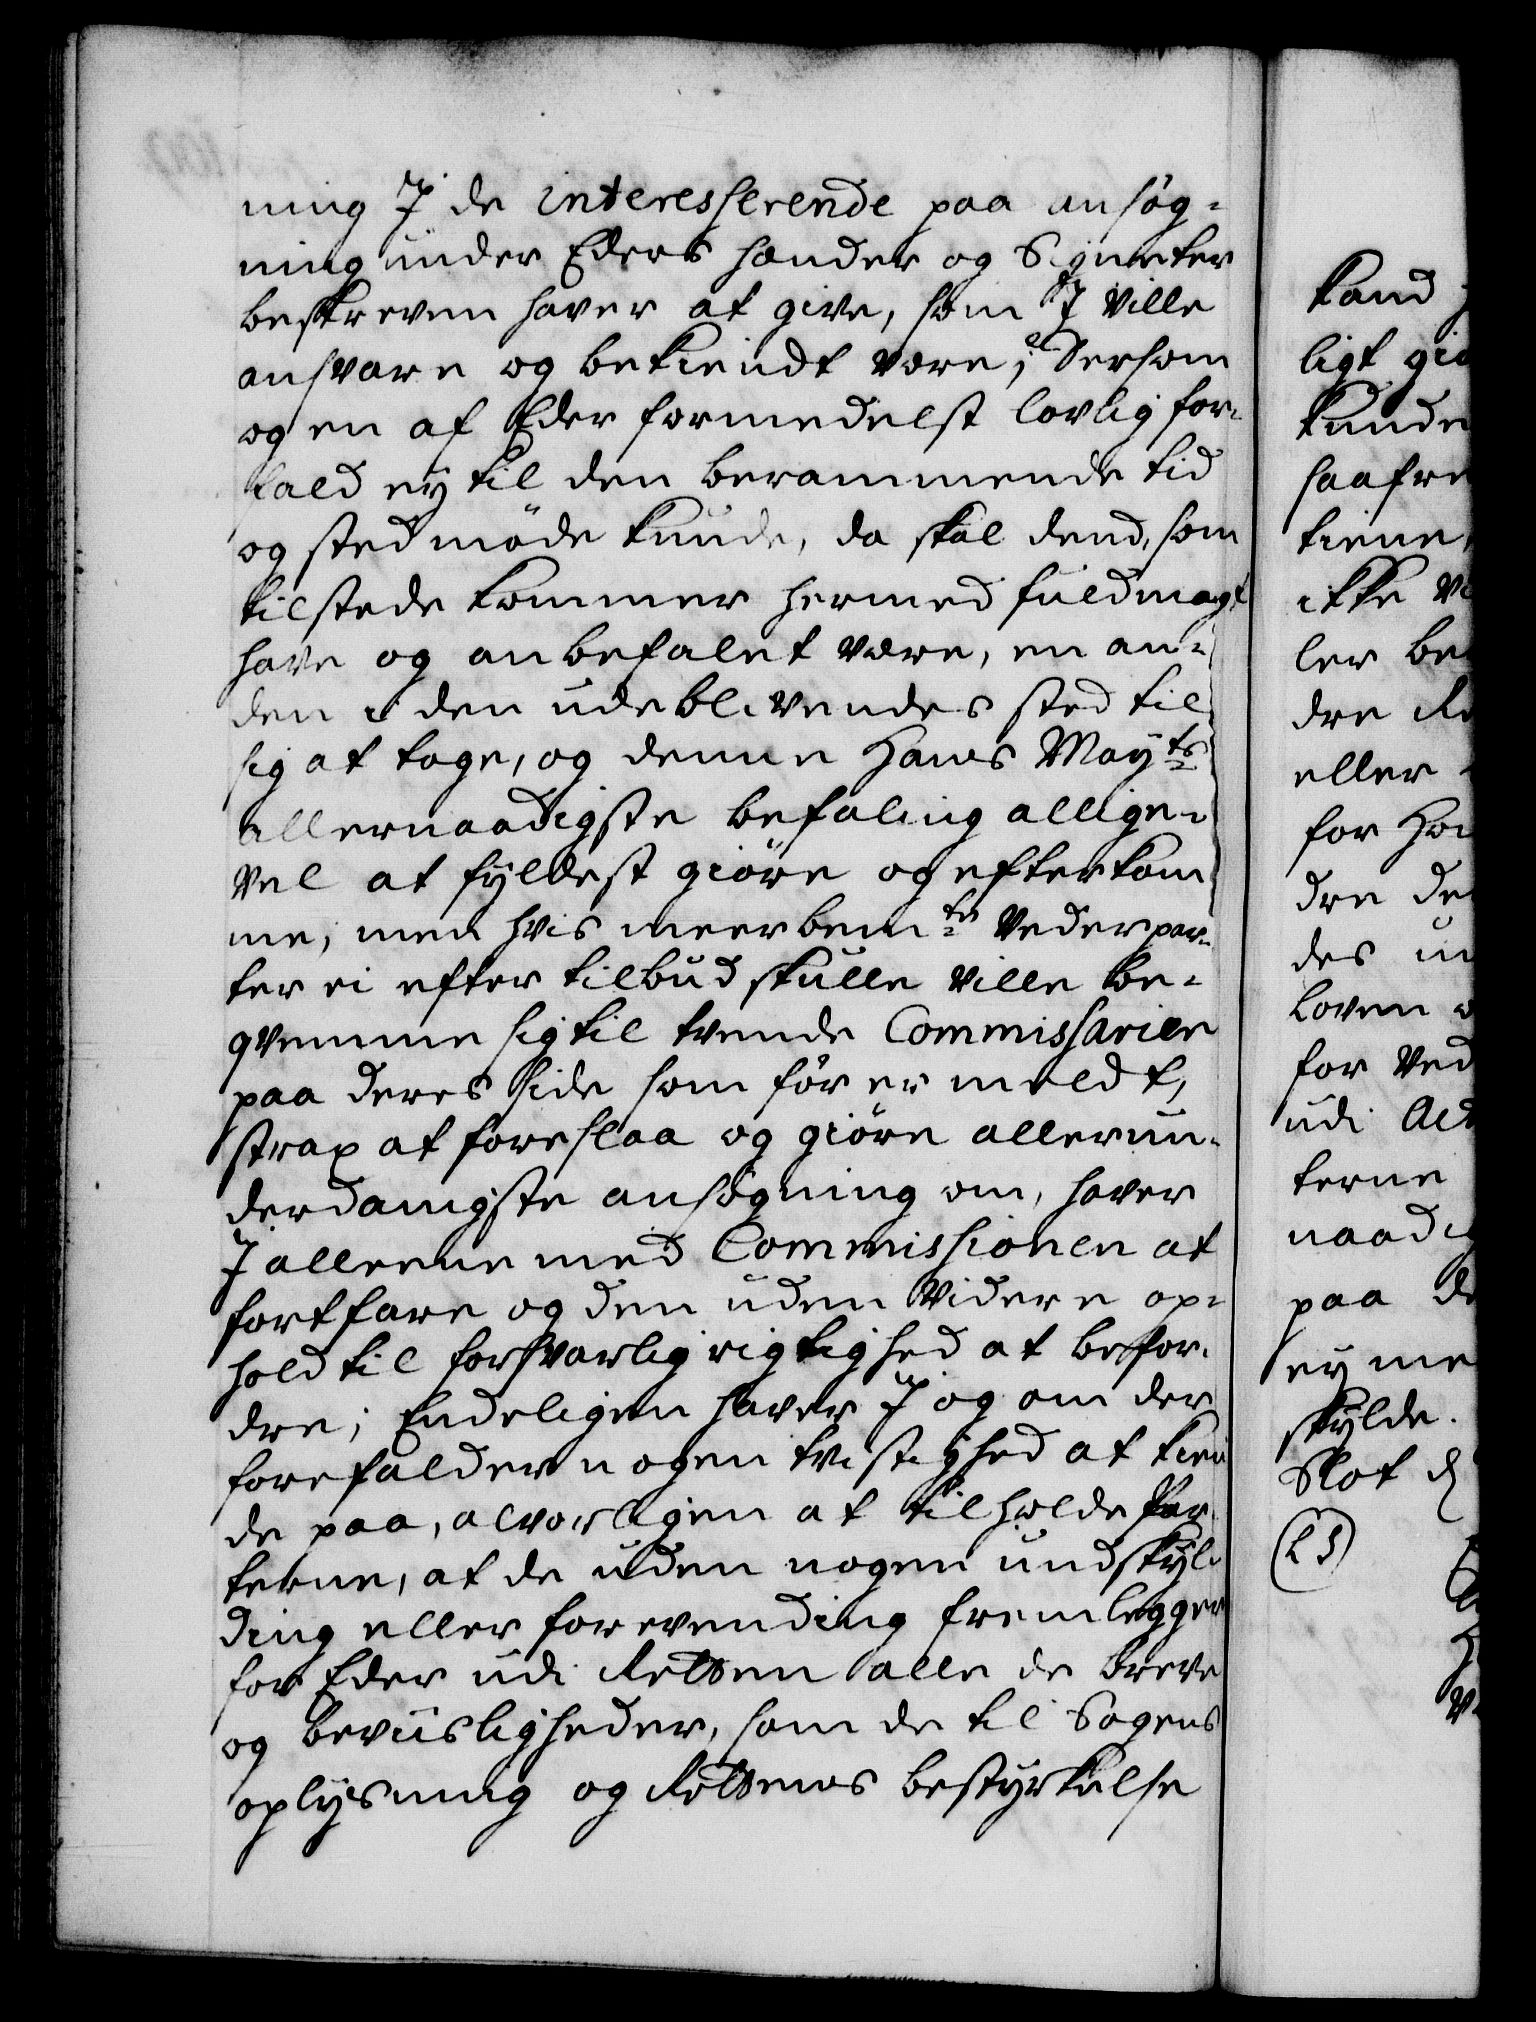 ning I de interesserende paa ansøg-
ning under Eders hænder og Signeter
beskreven haver at give, som I ville
ansvare og bekiendt være; Dersom
og en af Eder formedelst lovlig for-
fald ey til den berammende tid
og sted møde kunde, da skal dend, som
tilstede kommer hermed fuldmagt
have og anbefalet være, en an-
den i den udeblivendes sted til
sig at tage, og denne Hans May.ts
allernaadigste befaling allige-
vel at fyldest giøre og efterkom
me, men hvis meerbem.te Vederpar-
ter ei efter tilbud skulle ville be-
qvemme sig til tvende Commissarier
paa deres side som før er meldt,
strax at foreslaa og giøre allerun-
derdanigste ansøgning om, haver
I alleene med Commissionen at
fortfare og den uden videre op-
hold til forsvarlig rigtighed at befor-
dre; Endeligen haver I og om der
forefalder nogen tvistighed at kien
de paa, alvorligen at tilholde Par-
terne, at de uden nogen undskyl-
ding eller forevending fremlegger
for Eder udi Retten alle de breve
og beviisligheder, som de til Sagens
oplysning og Rettens bestyrkelse
kand
ligt giø
kunde
saafre
tiene,
ikke
ler be
dre
eller
for
dre de
des
Loven
for Ved
udi
terne
naadig
paa
ey me
skylde.
Slot d
(L S)